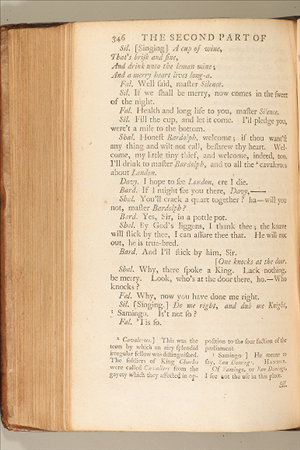 346 THE SECOND PART OF
Sil. [Singing] A cup of wine,
That's briſk and fine,
And drink unto the leman mine;
And a merry heart lives long-a.
Fal. Well ſaid, maſter Silence.
Sil. If we ſhall be merry, now comes in the ſweet
of the night.
Fal. Health and long life to you, maſter Silence.
Sil. Fill the cup, and let it come. I'll pledge you,
were't a mile to the bottom.
Shal. Honeſt Bardolph, welcome; if thou want'ſt
any thing and wilt not call, beſhrew thy heart. Wel-
come, my little tiny thief, and welcome, indeed, too.
I'll drink to maſter Bardolph, and to all the ⁴ cavaleroes
about London.
Davy. I hope to ſee London, ere I die.
Bard. If I might ſee you there, Davy,——
Shal. You'll crack a quart together? ha—will you
not, maſter Bardolph?
Bard. Yes, Sir, in a pottle pot.
Shal. By God's liggens, I thank thee; the knave
will ſtick by thee, I can aſſure thee that. He will not
out, he is true-bred.
Bard. And I'll ſtick by him, Sir.
[One knocks at the door.
Shal. Why, there ſpoke a King. Lack nothing,
be merry. Look, who's at the door there, ho.—Who
knocks?
Fal. Why, now you have done me right.
Sil. [Singing.] Do me right, and dub me Knight,
⁵ Samingo. Is't not ſo?
Fal. 'Tis ſo.
⁴ Cavaleroes.] This was the
term by which an airy ſplendid
irregular fellow was diſtinguiſhed.
The ſoldiers of King Charles
were called Cavaliers from the
gayety which they affected in op-
poſition to the ſour faction of the
parliament
⁵ Samingo.] He means to
ſay, San Domingo. HANMER.
Of Samingo, or San Domingo,
I ſee not the uſe in this place.
Sil.